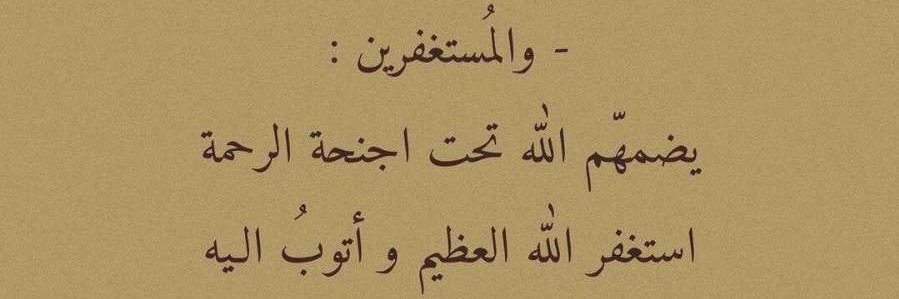 - والمُستغفرين :
يضمهّم الله تحت اجنحة الرحمة
استغفر الله العظيم و أتوبُ اليه